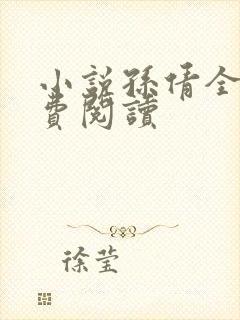 小説孫倩全
費閱讀
徐莹